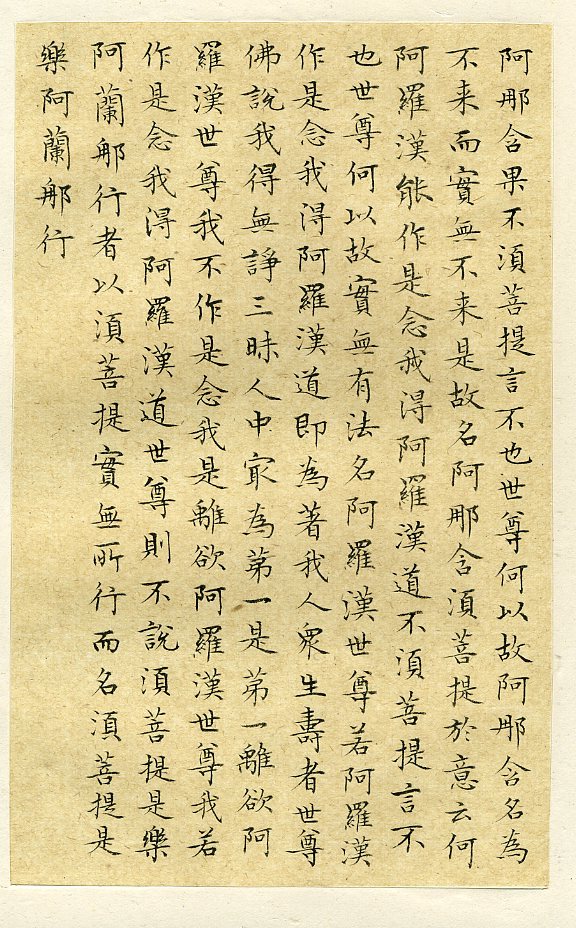 阿那含果不須菩提言不也世尊何以故阿那含名為
不来而實無不来是故名阿那含須菩提於意云何
阿羅漢能作是念我得阿羅漢道不須菩提言不
也世尊何以故實無有法名阿羅漢世尊若阿羅漢
作是念我得阿羅漢道即為著我人衆生壽者世尊
佛說我得無諍三昧人中冣為第一是第一離欲阿
羅漢世尊我不作是念我是離欲阿羅漢世尊我若
作是念我得阿羅漢道世尊則不說須菩提是樂
阿蘭那行者以須菩提實無所行而名須菩提是
樂阿蘭那行